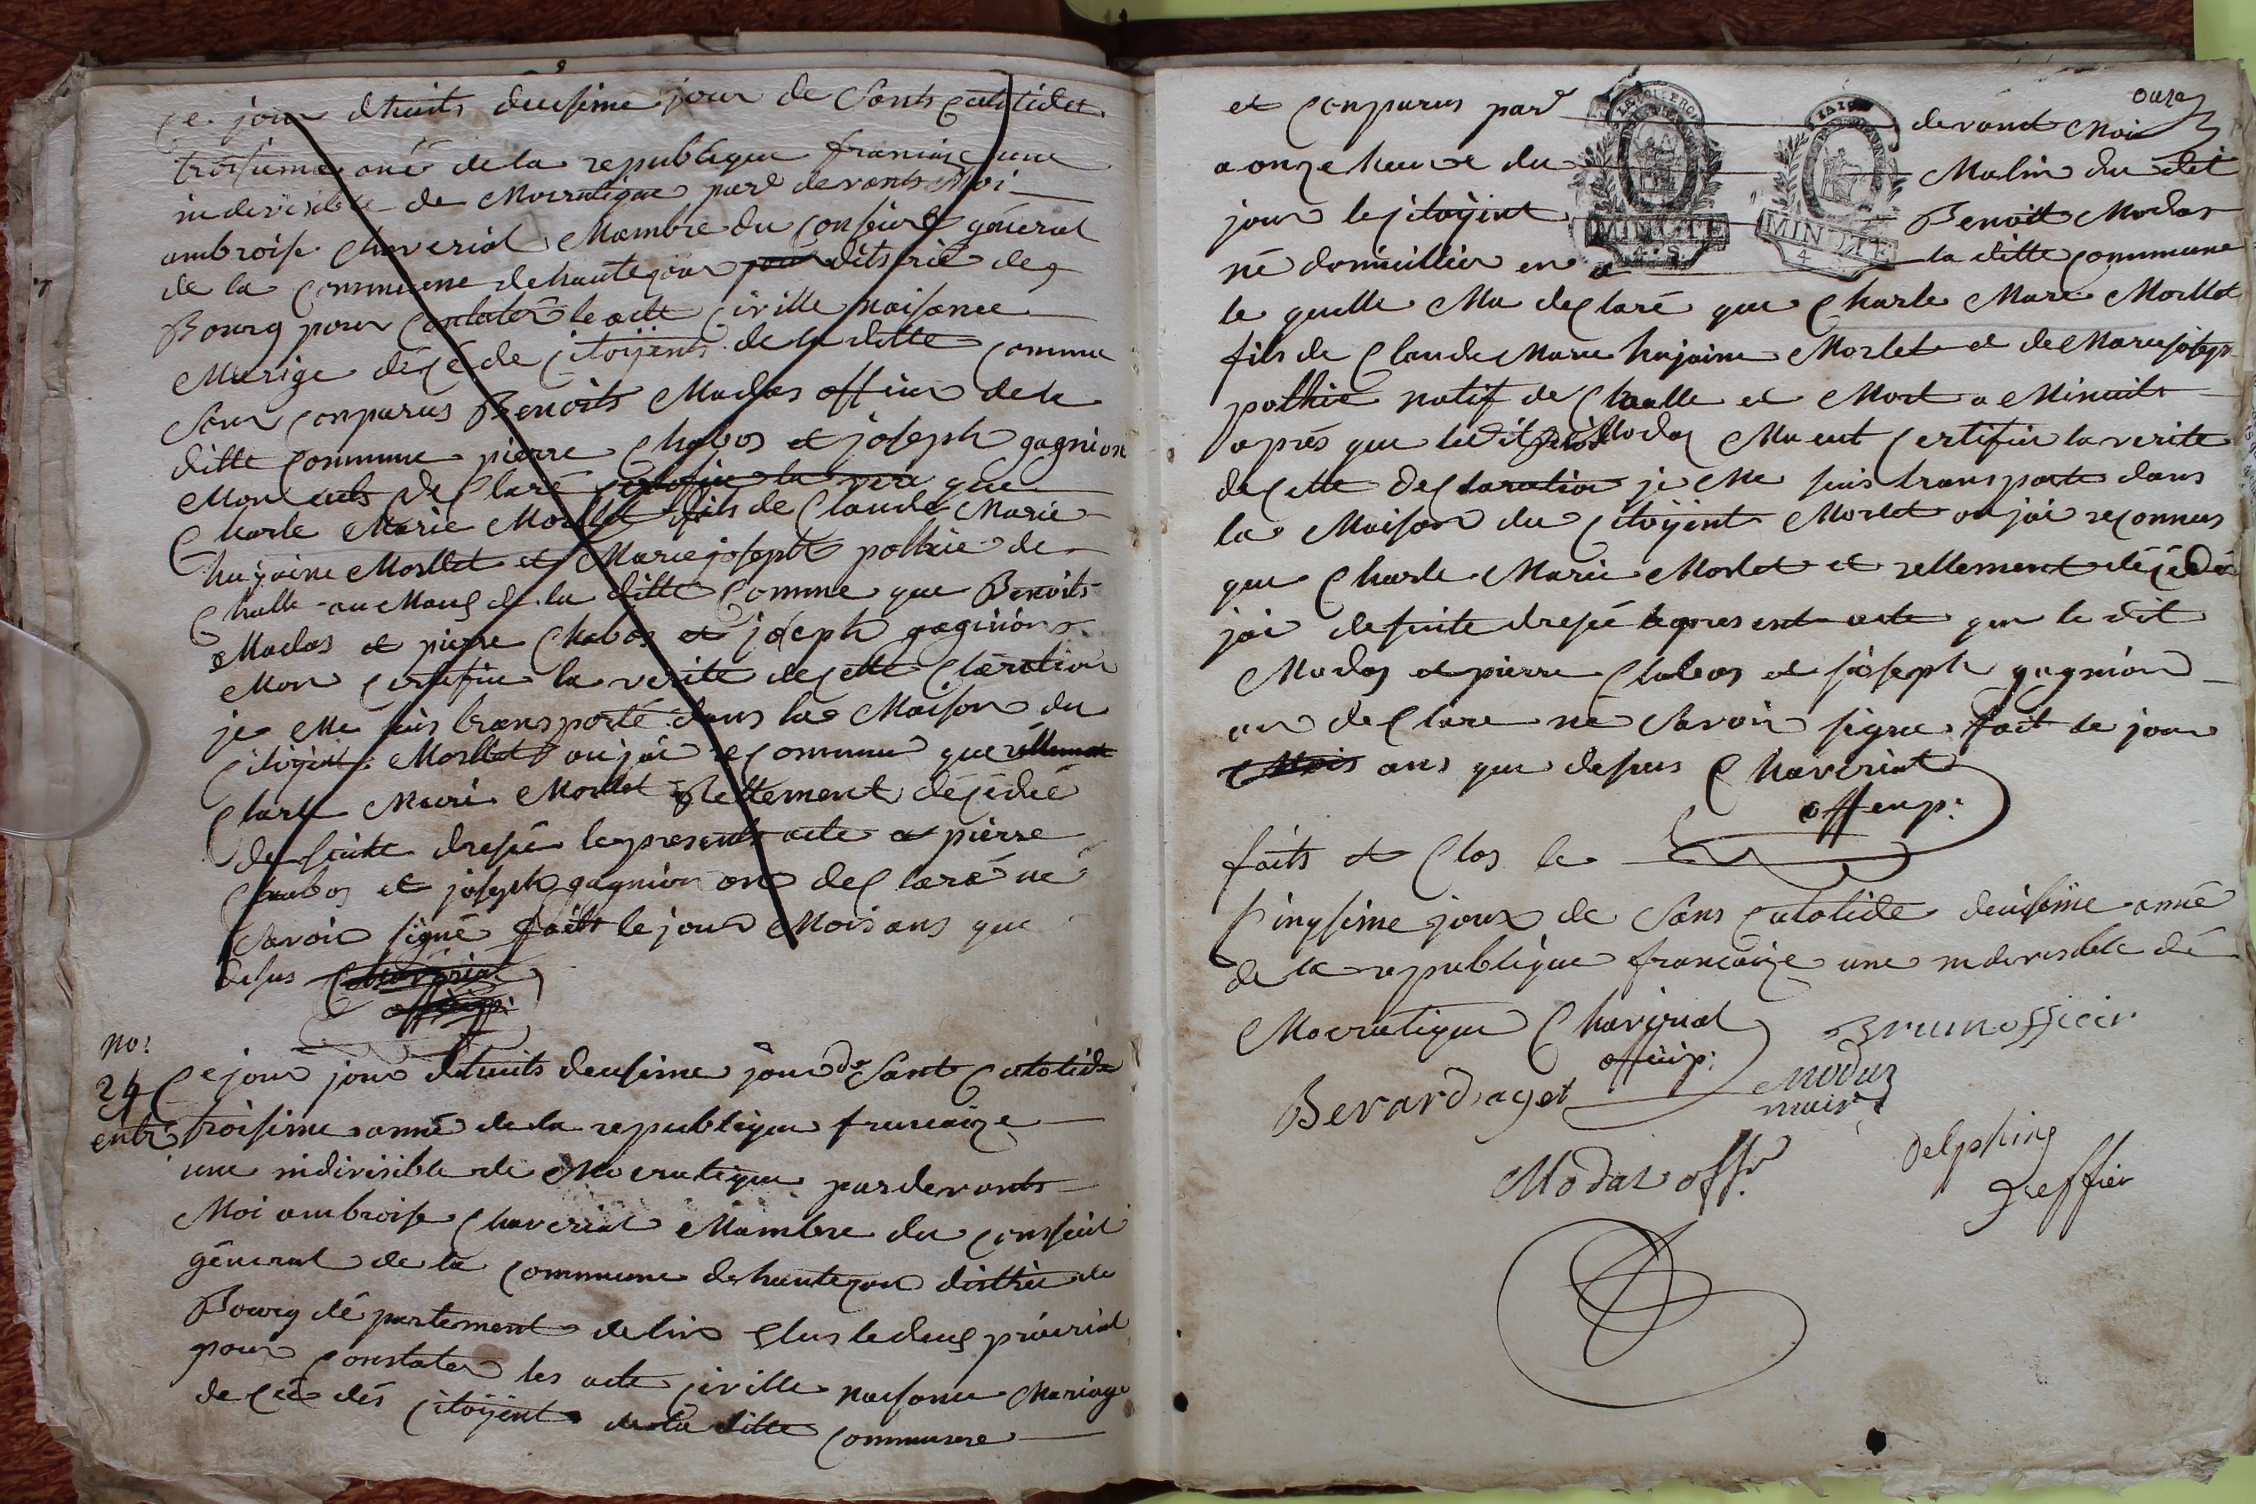 Ce jour dhuits deusime jour de Sants Culotides
troisieme ané de la republique francaize une
indevisible de Mocratique pard devants Moi
ambroise Chaveriat Mambre du Conseil général
de la Commune de hautecour pour ditsric de
Bourg pour Contater le acte Civille naisance
Marige décé de Citoÿents de la ditte Comune
Sont Conparus Benoits Modas offiur de la
ditte Commune pierre Chabos et joseph gagnion
Mon de Clare Certifie la veri que
Charle Marie Morllet fils de Claude Marie
hujaine Morllet et Marie joseph pothie de
Challe au Mans de la ditte Comme que Benoits
Modas et pierre Chabos et joseph gaginion
Mon Certifie la verite de Cette Claration
je Me suis transporté dans la Maison du
Citoÿint Morllet ou jai reconnu que
Charle Marie Morllet Rellement décédé
de suite dresée le presents acte a pierre
Chabos et joseph gagnion on de Claré né
Savoir signé faits le jour Mois ans que
desus Chaveriat
offsiep:
no:
24 Ce jour jour dhuits deusime jour de Sant Culotide
troisime anné de la republique francaize
une indivisible de Mocratique pardevants
Moi ambroise Chaveriat Mambre du Consseil
général de la Commune de hautecour distric de
Bourg dé partement de lin Elus le deus prieriat
pour Constater les acte Civille naisance Mariage
de Céé dés Citoÿent de la ditte Commune
onze
et Conparus pard devant Moi
a onze heure du Matin du dit
jour le Citoÿint Benoitt Modas
MINUTE
4. S.
MINUTE
4
né domicillier en la ditte Commune
le quelle Ma de Claré que Charle Marie Morllet
fils de Claude Marie hujaine Morlet et de Marie joseph
pothie natif de Challe et Mort a Minuits
aprés que ledit Modas Ma eut Certifiu la verite
de Cette de Claration je Me suis transporte dans
la Maison du Citoÿent Morlet ou jai reconnus
que Charle Marie Morlet et rellement décédé
jai de suite dresée le present acte que le dit
Modas et pierre Chabos et joseph gagnion
on de Clare né Savoir signe fait le jour
Mois ans que desus Chaveriat
offenp:
faits et Clos le
Cinqsime jour de Sans Culotide deusiéme anné
de la republique francaize une indevisible dé
Mocratique Chaveriat Brun officier
offsiep: Modas
Berard aget maire
Delphing
Modas offr. Greffier